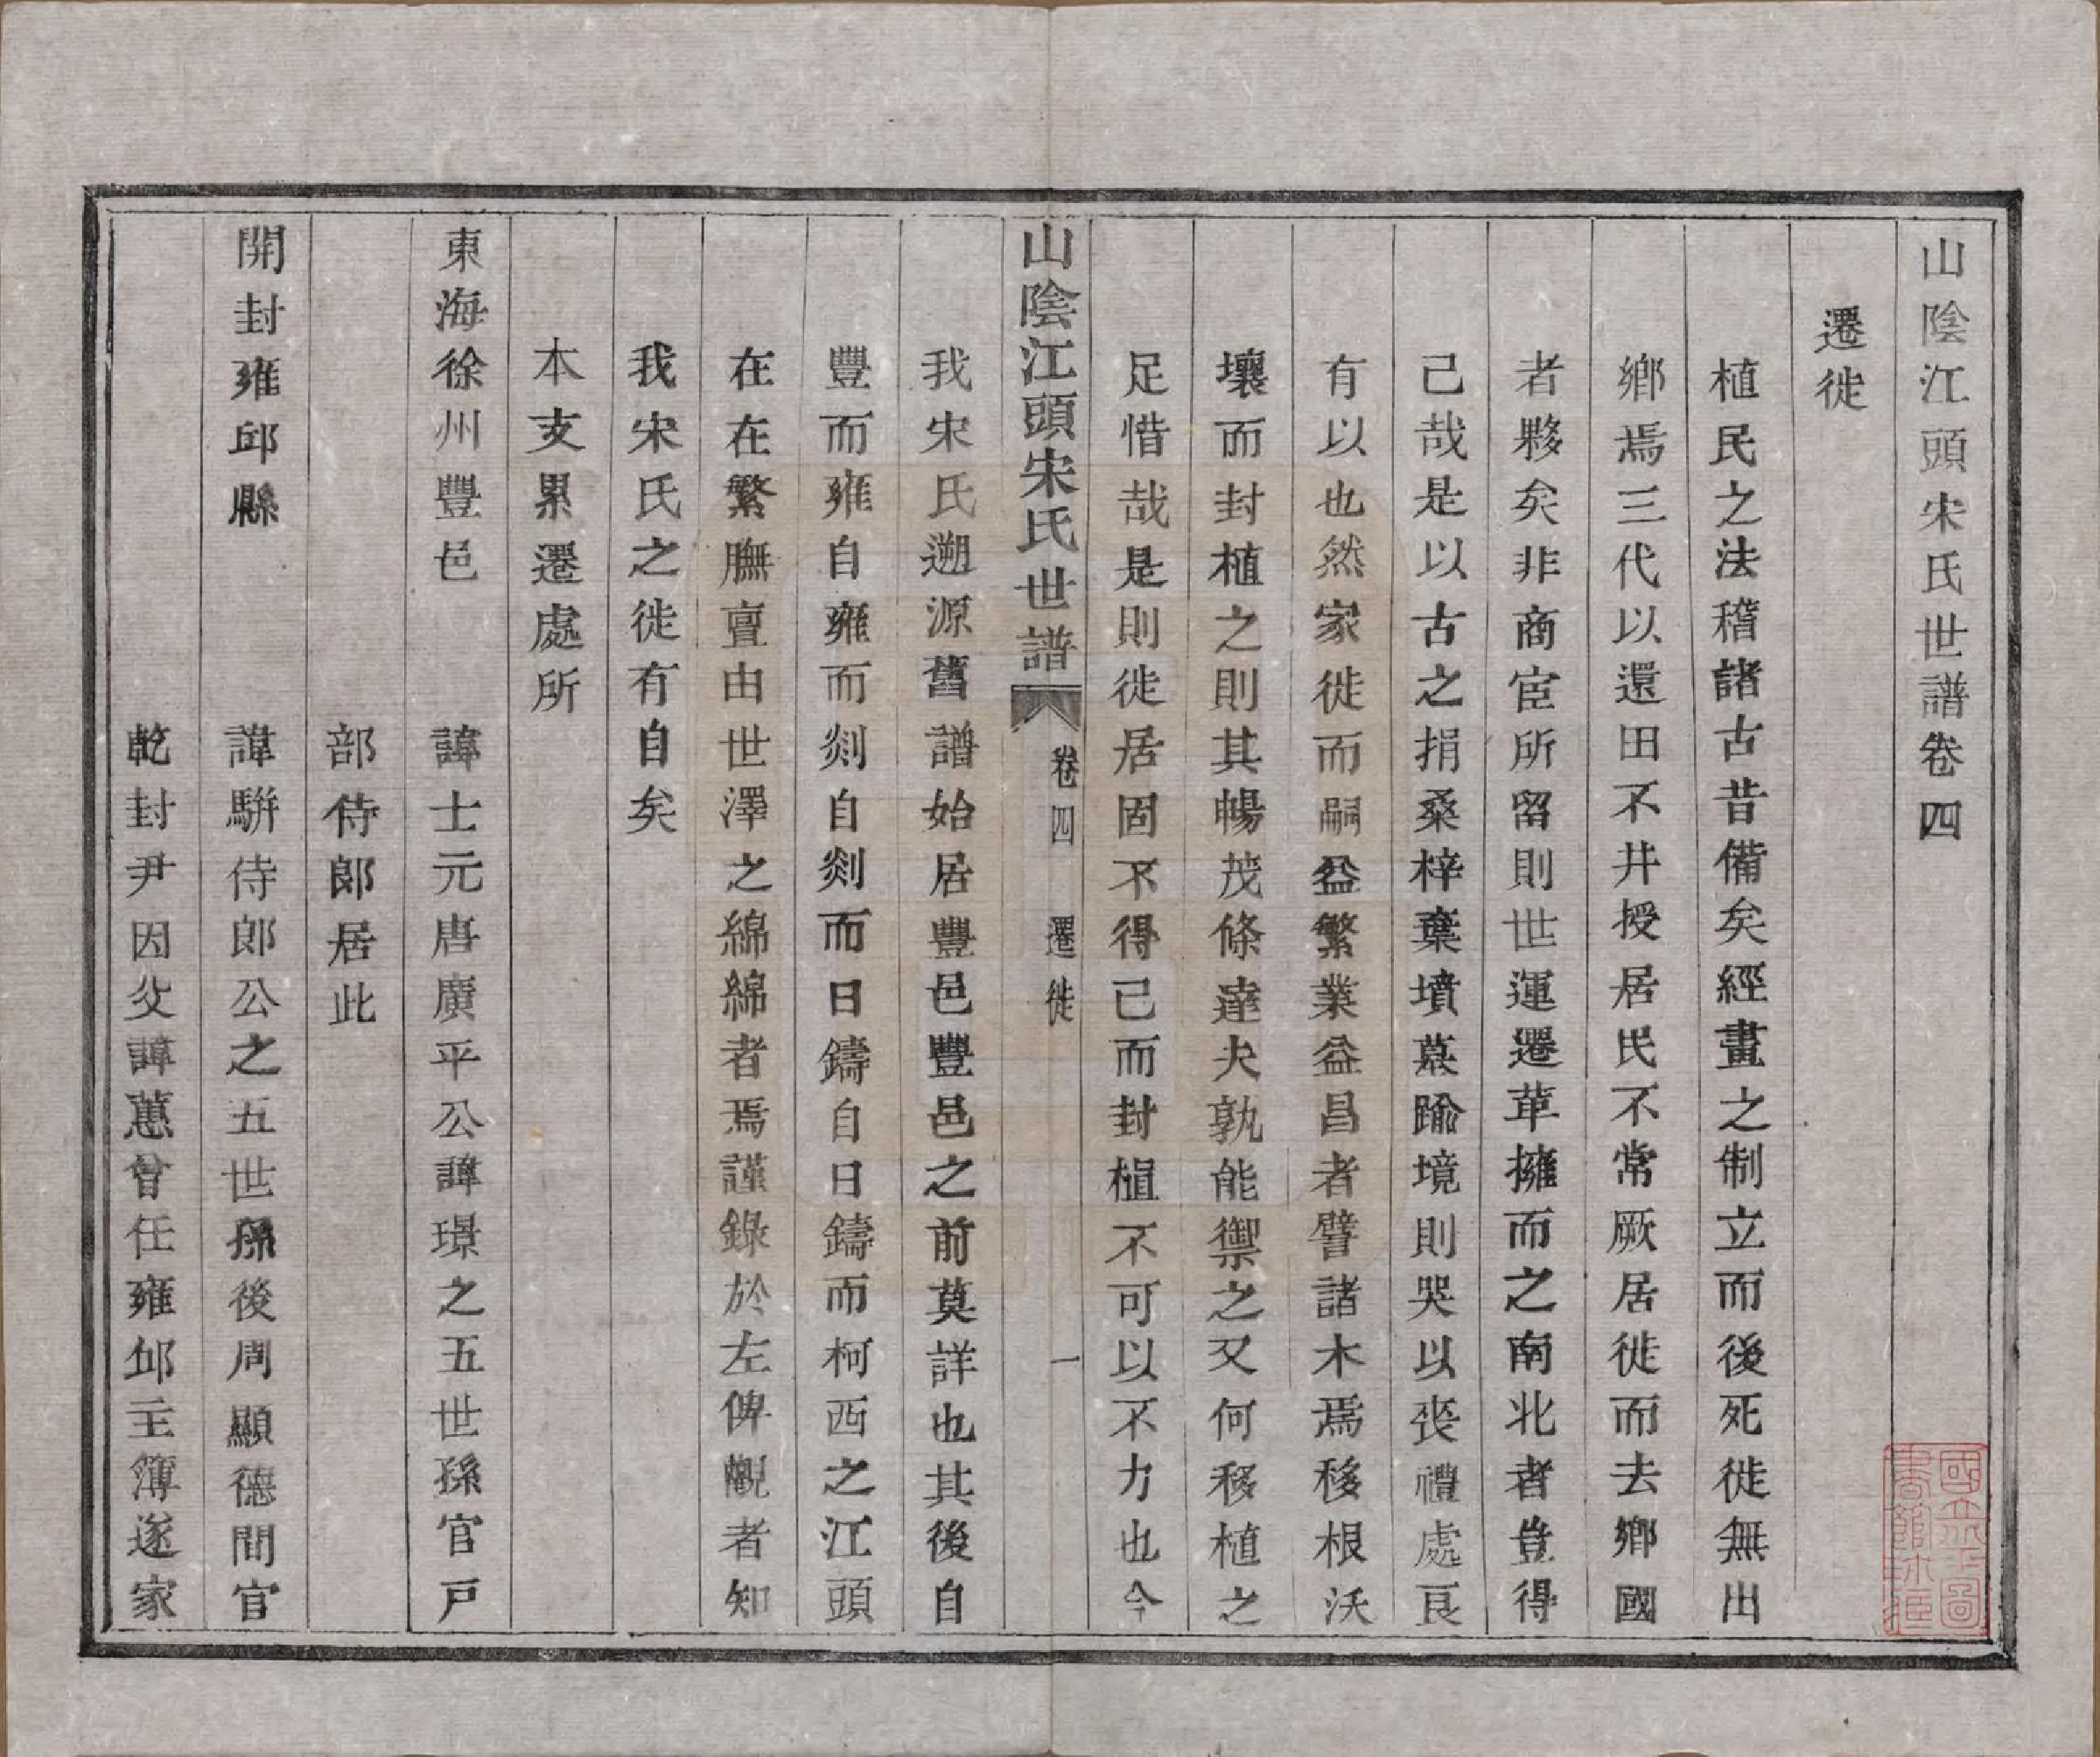 山陰江頭宋氏世譜卷四
遷徙
植民之法稽諸古昔備矣經畫之制立而後死徙無出
鄉焉三代以還田不井授居民不常厥居徙而去鄉國
者夥矣非商宦所留則世運遷革擁而之南北者豈得
已哉是以古之捐桑梓棄墳墓踰境則哭以喪禮處良
有以也然家徙而嗣益繁業益昌者譬諸木焉移根沃
壤而封植之則其暢茂條達夫孰能禦之又何移植之
足惜哉是則徙居固不得已而封植不可以不力也今
山陰江頭宋氏世譜 卷四 遷徙 一
我宋氏遡源舊譜始居豐邑豐邑之前莫詳也其後自
豐而雍自雍而剡自剡而日鑄自日鑄而柯西之江頭
在在繁膴亶由世澤之綿綿者焉謹錄於左俾觀者知
我宋氏之徙有自矣
本支累遷處所
東海徐州豐邑 諱士元唐廣平公諱璟之五世孫官戸
部侍郎居此
開封雍邱縣 諱駢侍郎公之五世孫後周顯德間官
乾封尹因父諱蕙曾任雍邱主簿遂家
國立北平圖書館珍藏